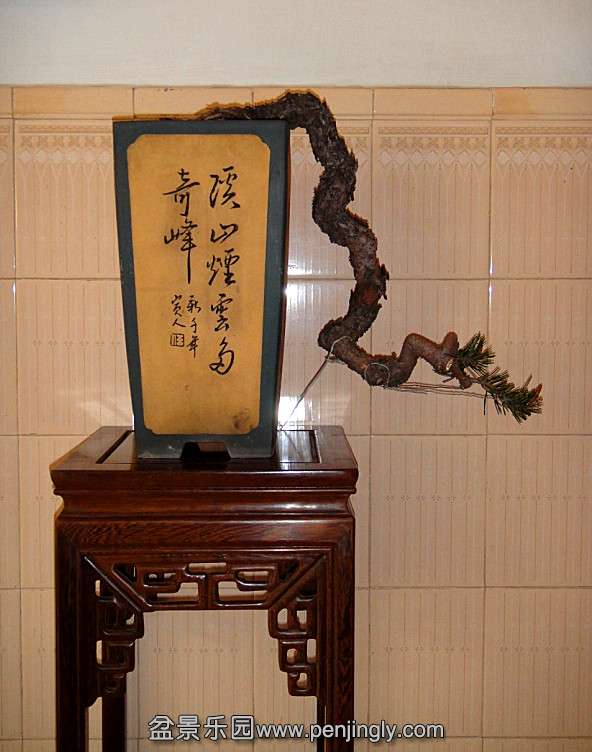 溪山煙雲多
奇峰
新千年
盆景乐园www.penjingly.com